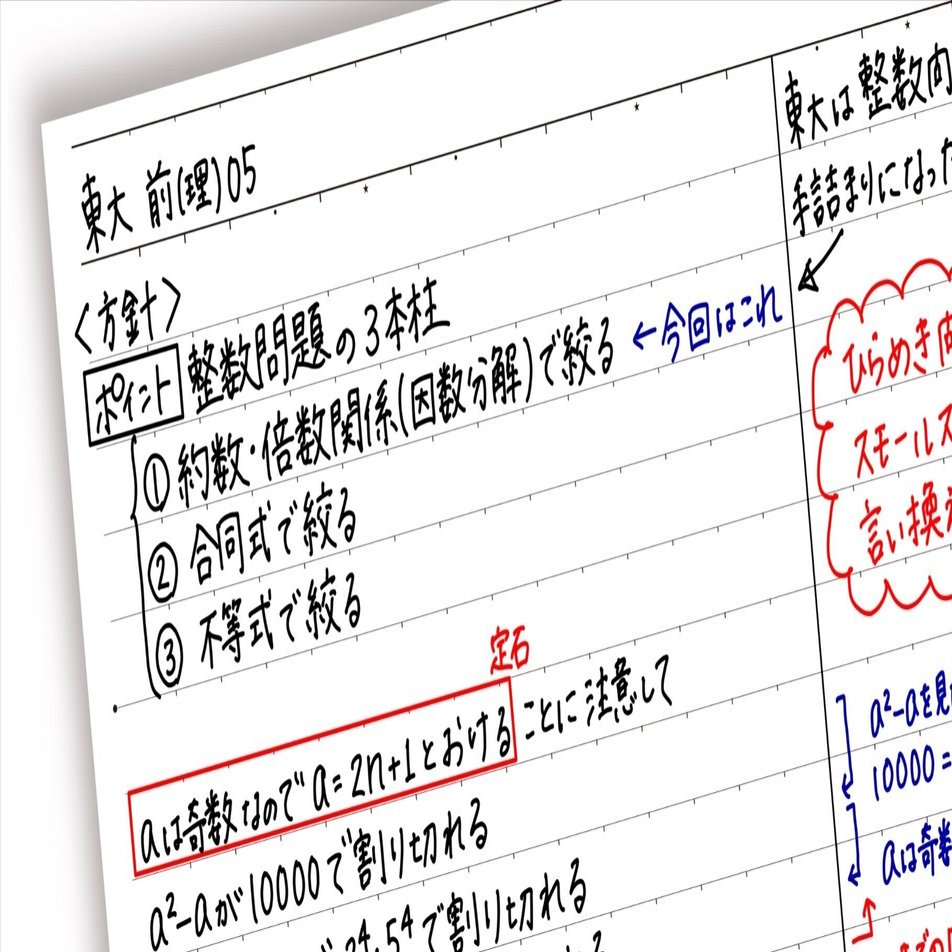 東大 前(理)05
〈方針〉
ポイント 整数問題の3本柱
① 約数・倍数関係(因数分解)で絞る ←今回はこれ
② 合同式で絞る
③ 不等式で絞る
定石
aは奇数なのでa=2n+1とおける ことに注意して
a²-aが10000で割り切れる
2⁴・5⁴で割り切れる
東大は整数
手詰まりになった
ひらめき
スモールス
言い換え
a²-aを見
10000=
aは奇数